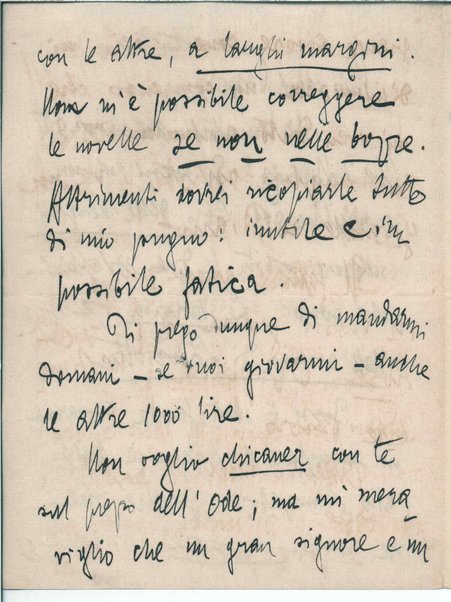 con le altre, a larghi margini.
Non m'è possibile correggere
le novelle se non nelle bozze.
Altrimenti dovrei ricopiarle tutte
di mio pugno: inutile e im
possibile fatica.
Ti prego dunque di mandarmi
domani – se vuoi giovarmi – anche
le altre 1000 lire.
Non voglio chicaner con te
sul prezzo dell'Ode; ma mi mera
viglio che un gran signore e un